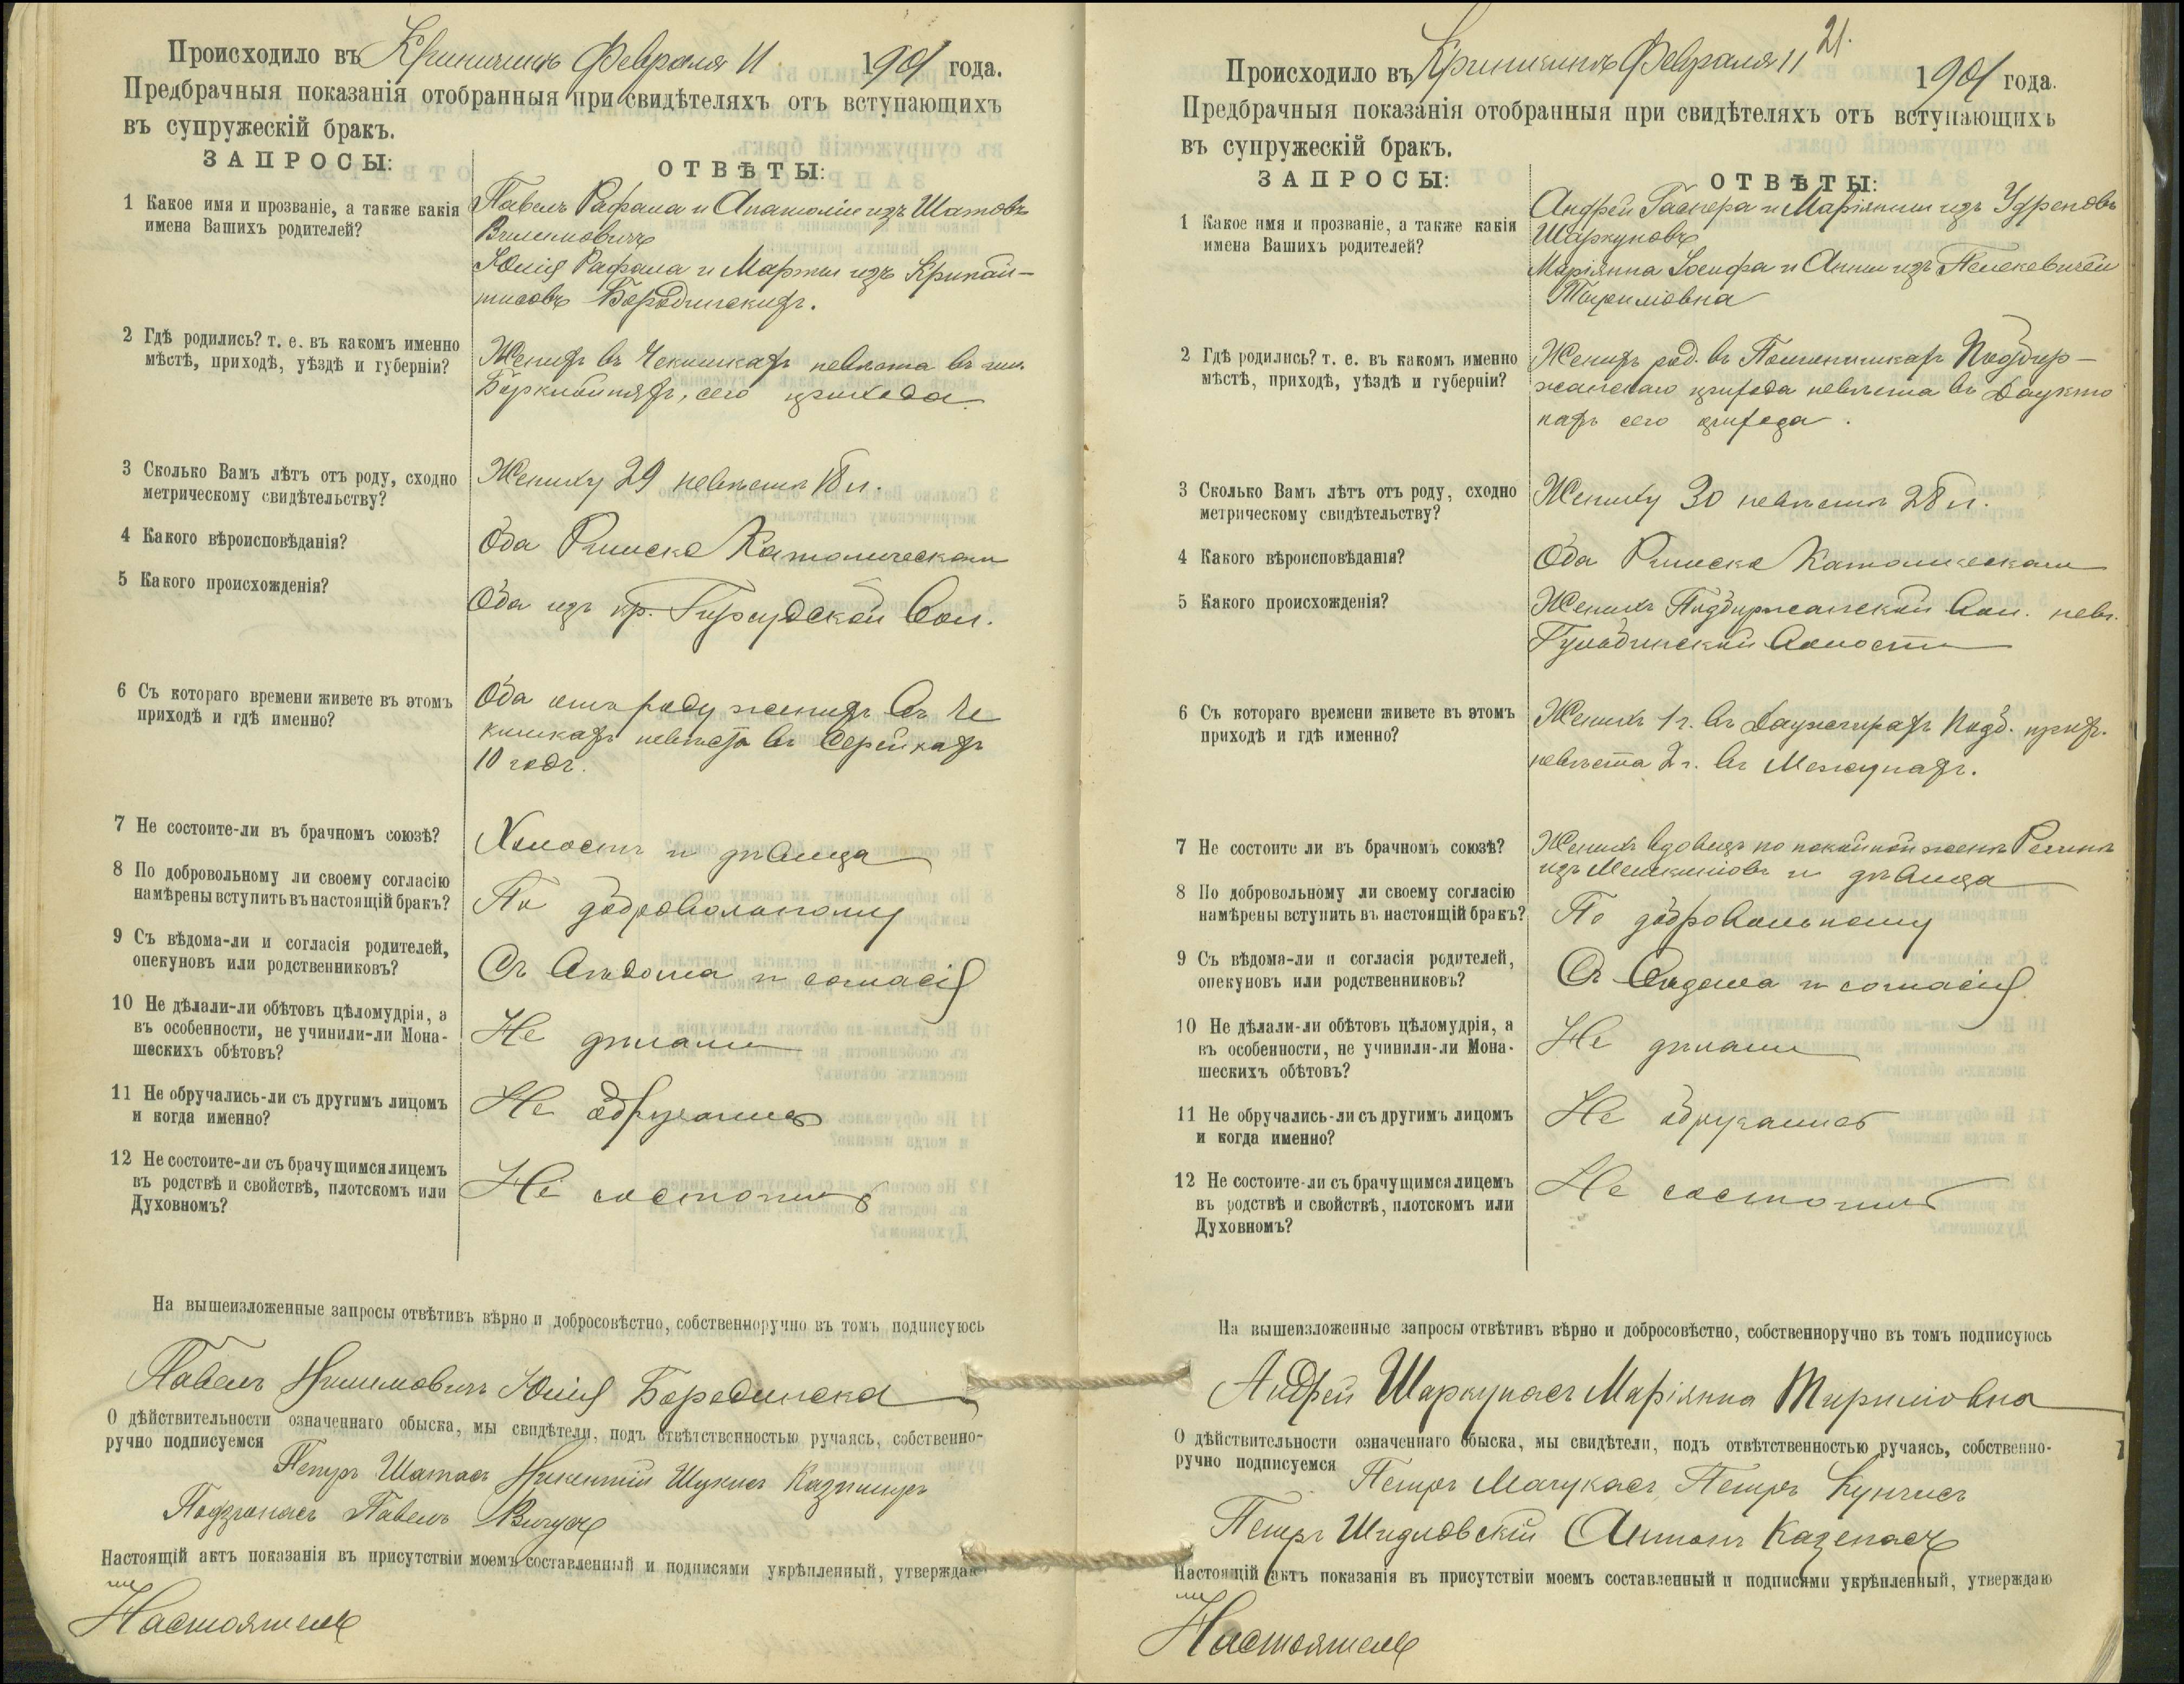 Происходило въ Крипичинъ Февраля 11 1901 года.
Предбрачныя показанія отобранныя при свидѣтеляхъ отъ вступающихъ
въ супружескій бракъ.
ЗАПРОСЫ: ОТВѢТЫ:
1 Какое имя и прозваніе, а также какія
имена Вашихъ родителей?
Павелъ Рафала и Анатоліи изъ Шатовъ
Юлія Рафала и Марты изъ
2 Гдѣ родились? т. е. въ какомъ именно
мѣстѣ, приходѣ, уѣздѣ и губерніи?
Женихъ въ Чекишкахъ невѣста въ
сего прихода
3 Сколько Вамъ лѣтъ отъ роду, сходно
метрическому свидѣтельству?
Жениху 29 невѣстѣ 18 л.
4 Какого вѣроисповѣданія?
Оба Римско Католическаго
5 Какого происхожденія?
Оба изъ кр. Гирдудской Вол.
6 Съ котораго времени живете въ этомъ
приходѣ и гдѣ именно?
Оба отъ роду женихъ въ Че
кишкахъ невѣста въ Серейкахъ
10 годъ.
7 Не состоите-ли въ брачномъ союзѣ?
Холостъ и дѣвица
8 По добровольному ли своему согласію
намѣрены вступить въ настоящій бракъ?
По добровольному
9 Съ вѣдома-ли и согласія родителей,
опекуновъ или родственниковъ?
Съ вѣдома и согласія
10 Не дѣлали-ли обѣтовъ цѣломудрія, а
въ особенности, не учинили-ли Мона-
шескихъ обѣтовъ?
Не дѣлали
11 Не обручались-ли съ другимъ лицомъ
и когда именно?
Не обручались
12 Не состоите-ли съ брачущимся лицемъ
въ родствѣ и свойствѣ, плотскомъ или
Духовномъ?
Не состоимъ
На вышеизложенные запросы отвѣтивъ вѣрно и добросовѣстно, собственноручно въ томъ подписуюсь
Павелъ Юлія Бородинска
О дѣйствительности означеннаго обыска, мы свидѣтели, подъ отвѣтственностью ручаясь, собственно-
ручно подписуемся
Петръ Шатасъ Шукисъ Казимиръ
Павелъ
Настоящій актъ показанія въ присутствіи моемъ составленный и подписями укрѣпленный, утверждаю
Настоятель
21.
Происходило въ Крипичинъ Февраля 11 1901 года.
Предбрачныя показанія отобранныя при свидѣтеляхъ отъ вступающихъ
въ супружескій бракъ.
ЗАПРОСЫ: ОТВѢТЫ:
1 Какое имя и прозваніе, а также какія
имена Вашихъ родителей?
Андрей Гаспера и Маріянны изъ Удреновъ
Шаркуновъ
Маріянна Іосифа и Анны изъ Пелекевичей
2 Гдѣ родились? т. е. въ какомъ именно
мѣстѣ, приходѣ, уѣздѣ и губерніи?
Женихъ род. въ Подбир-
жанскаго прихода невѣста въ Даукто
нахъ сего прихода.
3 Сколько Вамъ лѣтъ отъ роду, сходно
метрическому свидѣтельству?
Жениху 30 невѣстѣ 28 л.
4 Какого вѣроисповѣданія?
Оба Римско Католическаго
5 Какого происхожденія?
Женихъ Подбиржанской Вол. невѣ.
Гульбинской Волости
6 Съ котораго времени живете въ этомъ
приходѣ и гдѣ именно?
Женихъ 1 г. въ Подб. прих.
невѣста 2 г. въ
7 Не состоите ли въ брачномъ союзѣ?
Женихъ вдовецъ по покойной женѣ
изъ и дѣвица
8 По добровольному ли своему согласію
намѣрены вступить въ настоящій бракъ?
По добровольному
9 Съ вѣдома-ли и согласія родителей,
опекуновъ или родственниковъ?
Съ вѣдома и согласія
10 Не дѣлали-ли обѣтовъ цѣломудрія, а
въ особенности, не учинили-ли Мона-
шескихъ обѣтовъ?
Не дѣлали
11 Не обручались-ли съ другимъ лицомъ
и когда именно?
Не обручались
12 Не состоите-ли съ брачущимся лицемъ
въ родствѣ и свойствѣ, плотскомъ или
Духовномъ?
Не состоимъ
На вышеизложенные запросы отвѣтивъ вѣрно и добросовѣстно, собственноручно въ томъ подписуюсь
Андрей Шаркунасъ Маріянна
О дѣйствительности означеннаго обыска, мы свидѣтели, подъ отвѣтственностью ручаясь, собственно-
ручно подписуемся
Петръ Мачукасъ Петръ Кунчисъ
Петръ Шидловскій Антонъ Казенасъ
Настоящій актъ показанія въ присутствіи моемъ составленный и подписями укрѣпленный, утверждаю
Настоятель